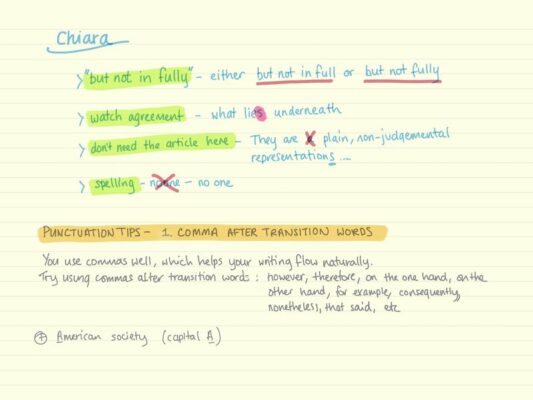 Chiara
> "but not in fully" - either but not in full or but not fully
> watch agreement - what lies underneath
> don't need the article here - They are a plain, non-judgemental
representations ....
> spelling - noone - no one
PUNCTUATION TIPS - 1. COMMA AFTER TRANSITION WORDS
You use commas well, which helps your writing flow naturally.
Try using commas after transition words: however, therefore, on the one hand, on the
other hand, for example, consequently,
nonetheless, that said, etc
+ American society (capital A)